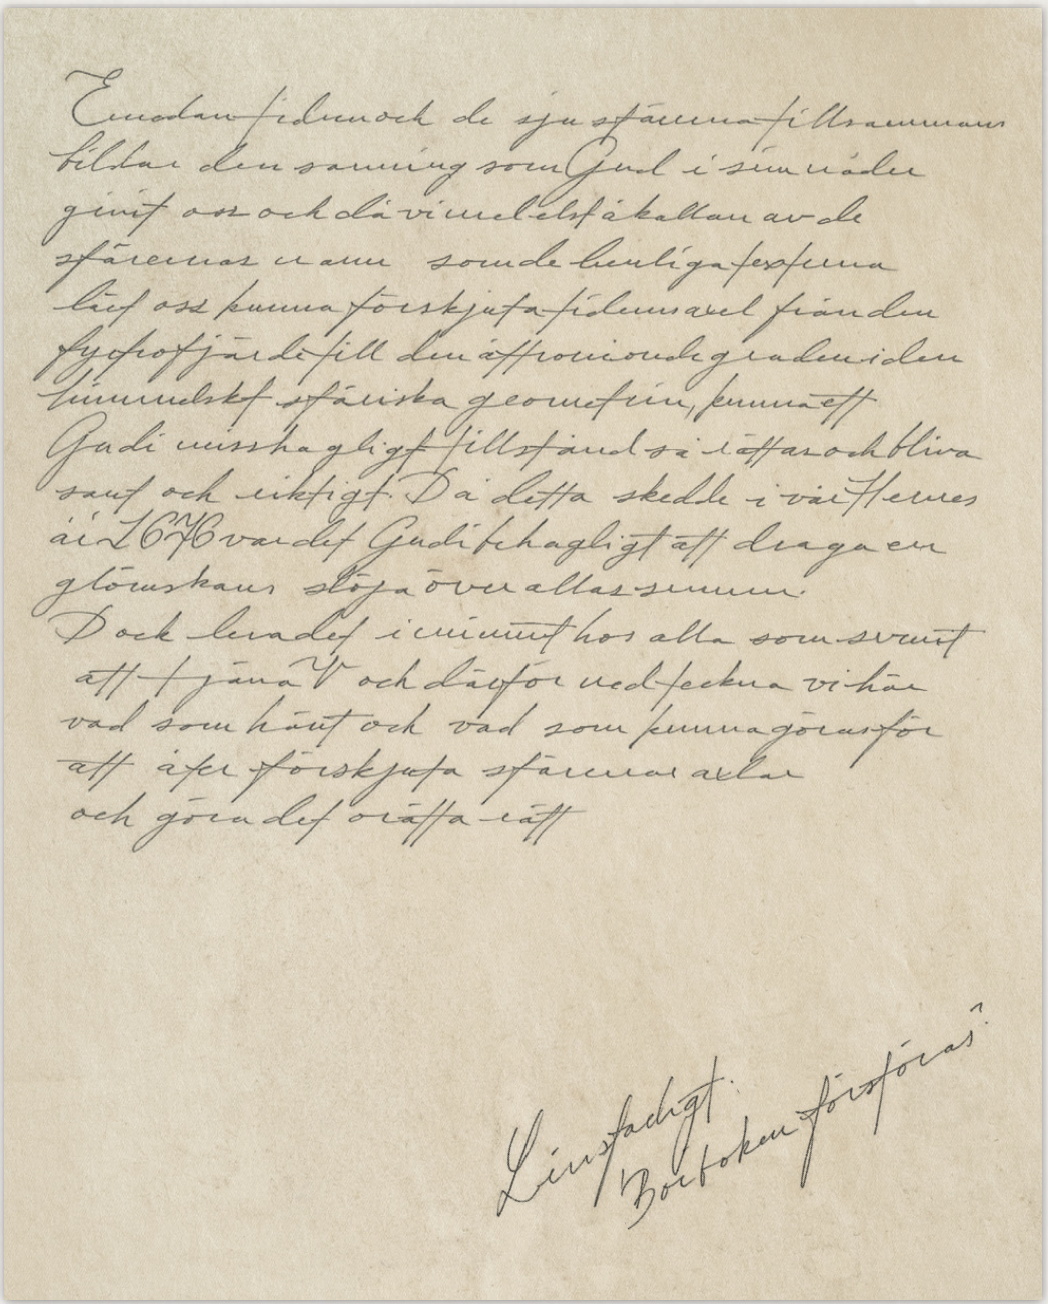 Emedan tiden och de sju sfärerna tillsammans
bildar den sanning som Gud i sin nåder
givit oss och då vi medelst åkallan av de
sfärernas namn som de heliga texterna
lärt oss kunna förskjuta tidens axel från den
fyrtiofjärde till den åttionionde graden i den
himmelskt sfäriska geometrin, kunna ett
Gudi misshagligt tillstånd så rättas och bliva
sant och riktigt. Då detta skedde i vår Herres
år 1676 var det Gudi behagligt att draga en
glömskans slöja över allas sinnen.
Dock leva det i minnet hos alla som svurit
att tjäna V och därför nedteckna vi här
vad som hänt och vad som kunna göras för
att åter förskjuta sfärernas axlar
och göra det orätta rätt
Linstadigt.
Borboken förstöras?